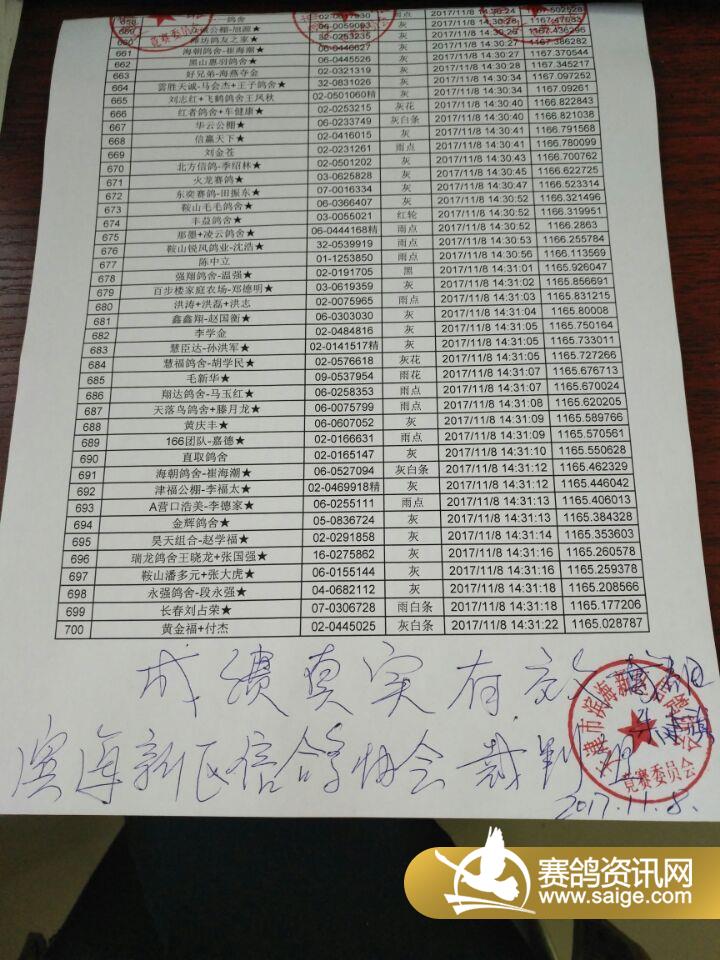 658 鸽舍 雨点 2017/11/8 14:30:24
海朝鸽舍-崔海潮★ 06-0446627 灰 2017/11/8 14:30:27 1167.386282
661 黑山惠羽鸽舍★ 06-0445526 灰 2017/11/8 14:30:27 1167.370544
662 好兄弟-海燕夺金 02-0321319 灰 2017/11/8 14:30:28 1167.345217
663 雲胜天诚-马会杰+王子鸽舍★ 32-0831026 灰 2017/11/8 14:30:34 1167.097252
664 刘志红+飞鹤鸽舍王凤秋 02-0501060精 灰 2017/11/8 14:30:34 1167.09261
665 红者鸽舍+车健康★ 02-0253215 灰花 2017/11/8 14:30:40 1166.822843
666 华云公棚★ 06-0233749 灰白条 2017/11/8 14:30:40 1166.821038
667 信赢天下★ 02-0416015 灰 2017/11/8 14:30:41 1166.791568
668 刘金苍 02-0231261 雨点 2017/11/8 14:30:41 1166.780099
669 北方信鸽-李绍林★ 02-0501202 灰 2017/11/8 14:30:43 1166.700762
670 火龙赛鸽★ 03-0625828 灰 2017/11/8 14:30:45 1166.622725
671 东奕赛鸽-田振东★ 07-0016334 灰 2017/11/8 14:30:47 1166.523314
672 鞍山毛毛鸽舍★ 06-0366407 灰 2017/11/8 14:30:52 1166.321496
673 丰益鸽舍★ 03-0055021 红轮 2017/11/8 14:30:52 1166.319951
674 那墨+凌云鸽舍★ 06-0444168精 雨点 2017/11/8 14:30:52 1166.2863
675 鞍山锐风鸽业-沈浩★ 32-0539919 雨点 2017/11/8 14:30:53 1166.255784
676 陈中立 01-1253850 雨点 2017/11/8 14:30:56 1166.113569
677 强翔鸽舍-温强★ 02-0191705 黑 2017/11/8 14:31:01 1165.926047
678 百步楼家庭农场-郑德明★ 03-0619359 灰 2017/11/8 14:31:02 1165.856691
679 洪涛+洪磊+洪志 02-0075965 雨点 2017/11/8 14:31:03 1165.831215
680 鑫鑫翔-赵国衡★ 06-0303030 灰 2017/11/8 14:31:04 1165.80008
681 李学金 02-0484816 灰 2017/11/8 14:31:05 1165.750164
682 慧臣达-孙洪军★ 02-0141517精 灰 2017/11/8 14:31:05 1165.733011
683 慧福鸽舍-胡学民★ 02-0576618 灰花 2017/11/8 14:31:05 1165.727266
684 毛新华★ 09-0537954 雨花 2017/11/8 14:31:07 1165.676713
685 翔达鸽舍-马玉红★ 06-0258353 雨点 2017/11/8 14:31:07 1165.670024
686 天落鸟鸽舍+滕月龙★ 06-0075799 雨点 2017/11/8 14:31:08 1165.620205
687 黄庆丰★ 06-0607052 灰 2017/11/8 14:31:09 1165.589766
688 166团队-嘉德★ 02-0166631 雨点 2017/11/8 14:31:09 1165.570561
689 直取鸽舍 02-0165147 灰 2017/11/8 14:31:10 1165.550628
690 海朝鸽舍-崔海潮★ 06-0527094 灰白条 2017/11/8 14:31:12 1165.462329
691 津福公棚-李福太★ 02-0469918精 灰 2017/11/8 14:31:12 1165.446042
692 A营口浩美-李德家★ 06-0255111 雨点 2017/11/8 14:31:13 1165.406013
693 金辉鸽舍★ 05-0836724 灰 2017/11/8 14:31:13 1165.384328
694 昊天组合-赵学福★ 02-0291858 灰 2017/11/8 14:31:14 1165.353603
695 瑞龙鸽舍王晓龙+张国强★ 16-0275862 灰 2017/11/8 14:31:16 1165.260578
696 鞍山潘多元+张大虎★ 06-0155144 灰 2017/11/8 14:31:16 1165.259378
697 永强鸽舍-段永强★ 04-0682112 灰 2017/11/8 14:31:18 1165.208566
698 长春刘占荣★ 07-0306728 雨白条 2017/11/8 14:31:18 1165.177206
699 黄金福+付杰 02-0445025 灰白条 2017/11/8 14:31:22 1165.028787
700
成绩真实有效
滨海新区信鸽协会裁判
天津市滨海新区信鸽协会
竞赛委员会
2017.11.8.
赛鸽资讯网
www.saige.com